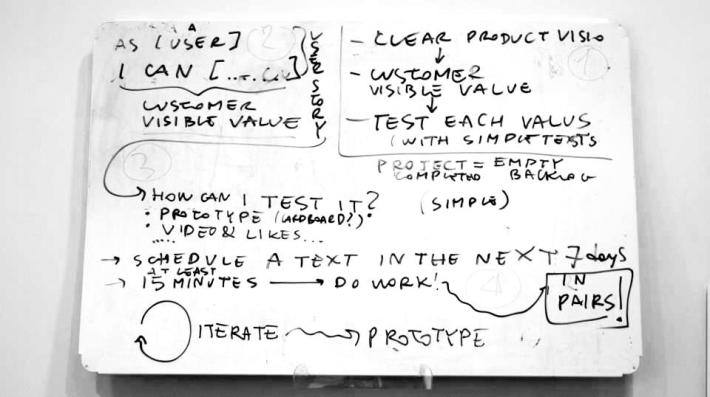 AS A [USER]
I CAN [.......]
USER STORY
CUSTOMER
VISIBLE VALUE
2
- CLEAR PRODUCT VISIO
- CUSTOMER
VISIBLE VALUE
- TEST EACH VALUS
(WITH SIMPLE TESTS
1
PROJECT = EMPTY
COMPLETED BACKLOG
3
→ HOW CAN I TEST IT?
(SIMPLE)
• PROTOTYPE (CARDBOARD?) •
• VIDEO & LIKES...
.....
→ SCHEDULE A TEXT IN THE NEXT 7 days
AT LEAST
→ 15 MINUTES → DO WORK!
4
IN
PAIRS!
ITERATE → PROTOTYPE